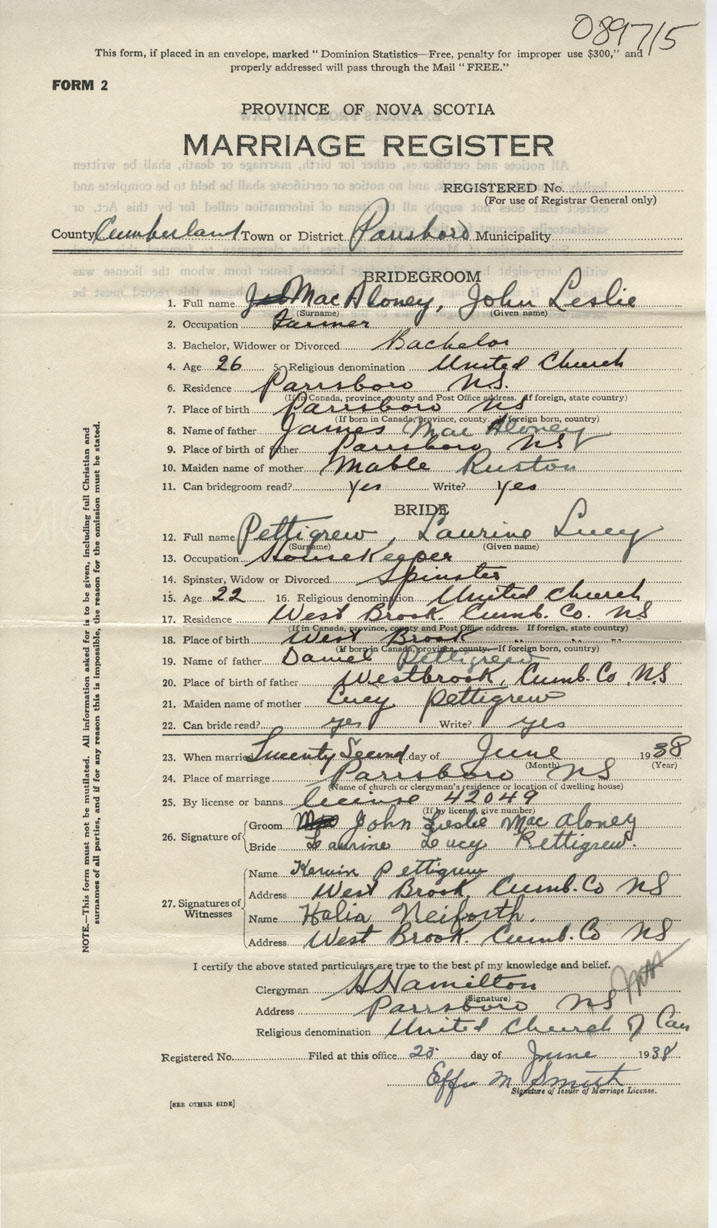 089715
This form, if placed in an envelope, marked "Dominion Statistics—Free, penalty for improper use $300," and
properly addressed will pass through the Mail "FREE."
FORM 2
PROVINCE OF NOVA SCOTIA
MARRIAGE REGISTER
REGISTERED No.
(For use of Registrar General only)
County Cumberland Town or District Parrsboro Municipality
BRIDEGROOM
1. Full name MacAloney, John Leslie
(Surname) (Given name)
2. Occupation Farmer
3. Bachelor, Widower or Divorced Bachelor
4. Age 26 5. Religious denomination United Church
6. Residence Parrsboro NS.
(If in Canada, province, county and Post Office address. If foreign, state country)
7. Place of birth Parrsboro NS
(If born in Canada, province, county. If foreign born, country)
8. Name of father James MacAloney
9. Place of birth of father Parrsboro NS
10. Maiden name of mother Mable Ruston
11. Can bridegroom read? Yes Write? Yes
BRIDE
12. Full name Pettigrew, Laurine Lucy
(Surname) (Given name)
13. Occupation HouseKeeper
14. Spinster, Widow or Divorced Spinster
15. Age 22 16. Religious denomination United Church
17. Residence West Brook Cumb. Co. NS
(If in Canada, province, county and Post Office address. If foreign, state country)
18. Place of birth West Brook
(If born in Canada, province, county. If foreign born, country)
19. Name of father Daniel Pettigrew
20. Place of birth of father Westbrook, Cumb. Co, NS
21. Maiden name of mother Lucy Pettigrew
22. Can bride read? yes Write? yes
23. When married Twenty Second day of June 1938
(Month) (Year)
24. Place of marriage Parrsboro NS
(Name of church or clergyman's residence or location of dwelling house)
25. By license or banns license 42049
(If by license, give number)
26. Signature of Groom John Leslie MacAloney
Bride Laurine Lucy Pettigrew.
27. Signatures of Witnesses Name Pettigrew
Address West Brook Cumb. Co NS
Name Halia Neiforth.
Address West Brook. Cumb. Co NS
I certify the above stated particulars are true to the best of my knowledge and belief.
Clergyman H Hamilton
(Signature)
Address Parrsboro NS
Religious denomination United Church of Can
Registered No. Filed at this office 25 day of June 1938
Effie M Smith
Signature of Issuer of Marriage License.
[SEE OTHER SIDE]
NOTE.—This form must not be mutilated. All information asked for is to be given, including full Christian and
surnames of all parties, and if for any reason this is impossible, the reason for the omission must be stated.